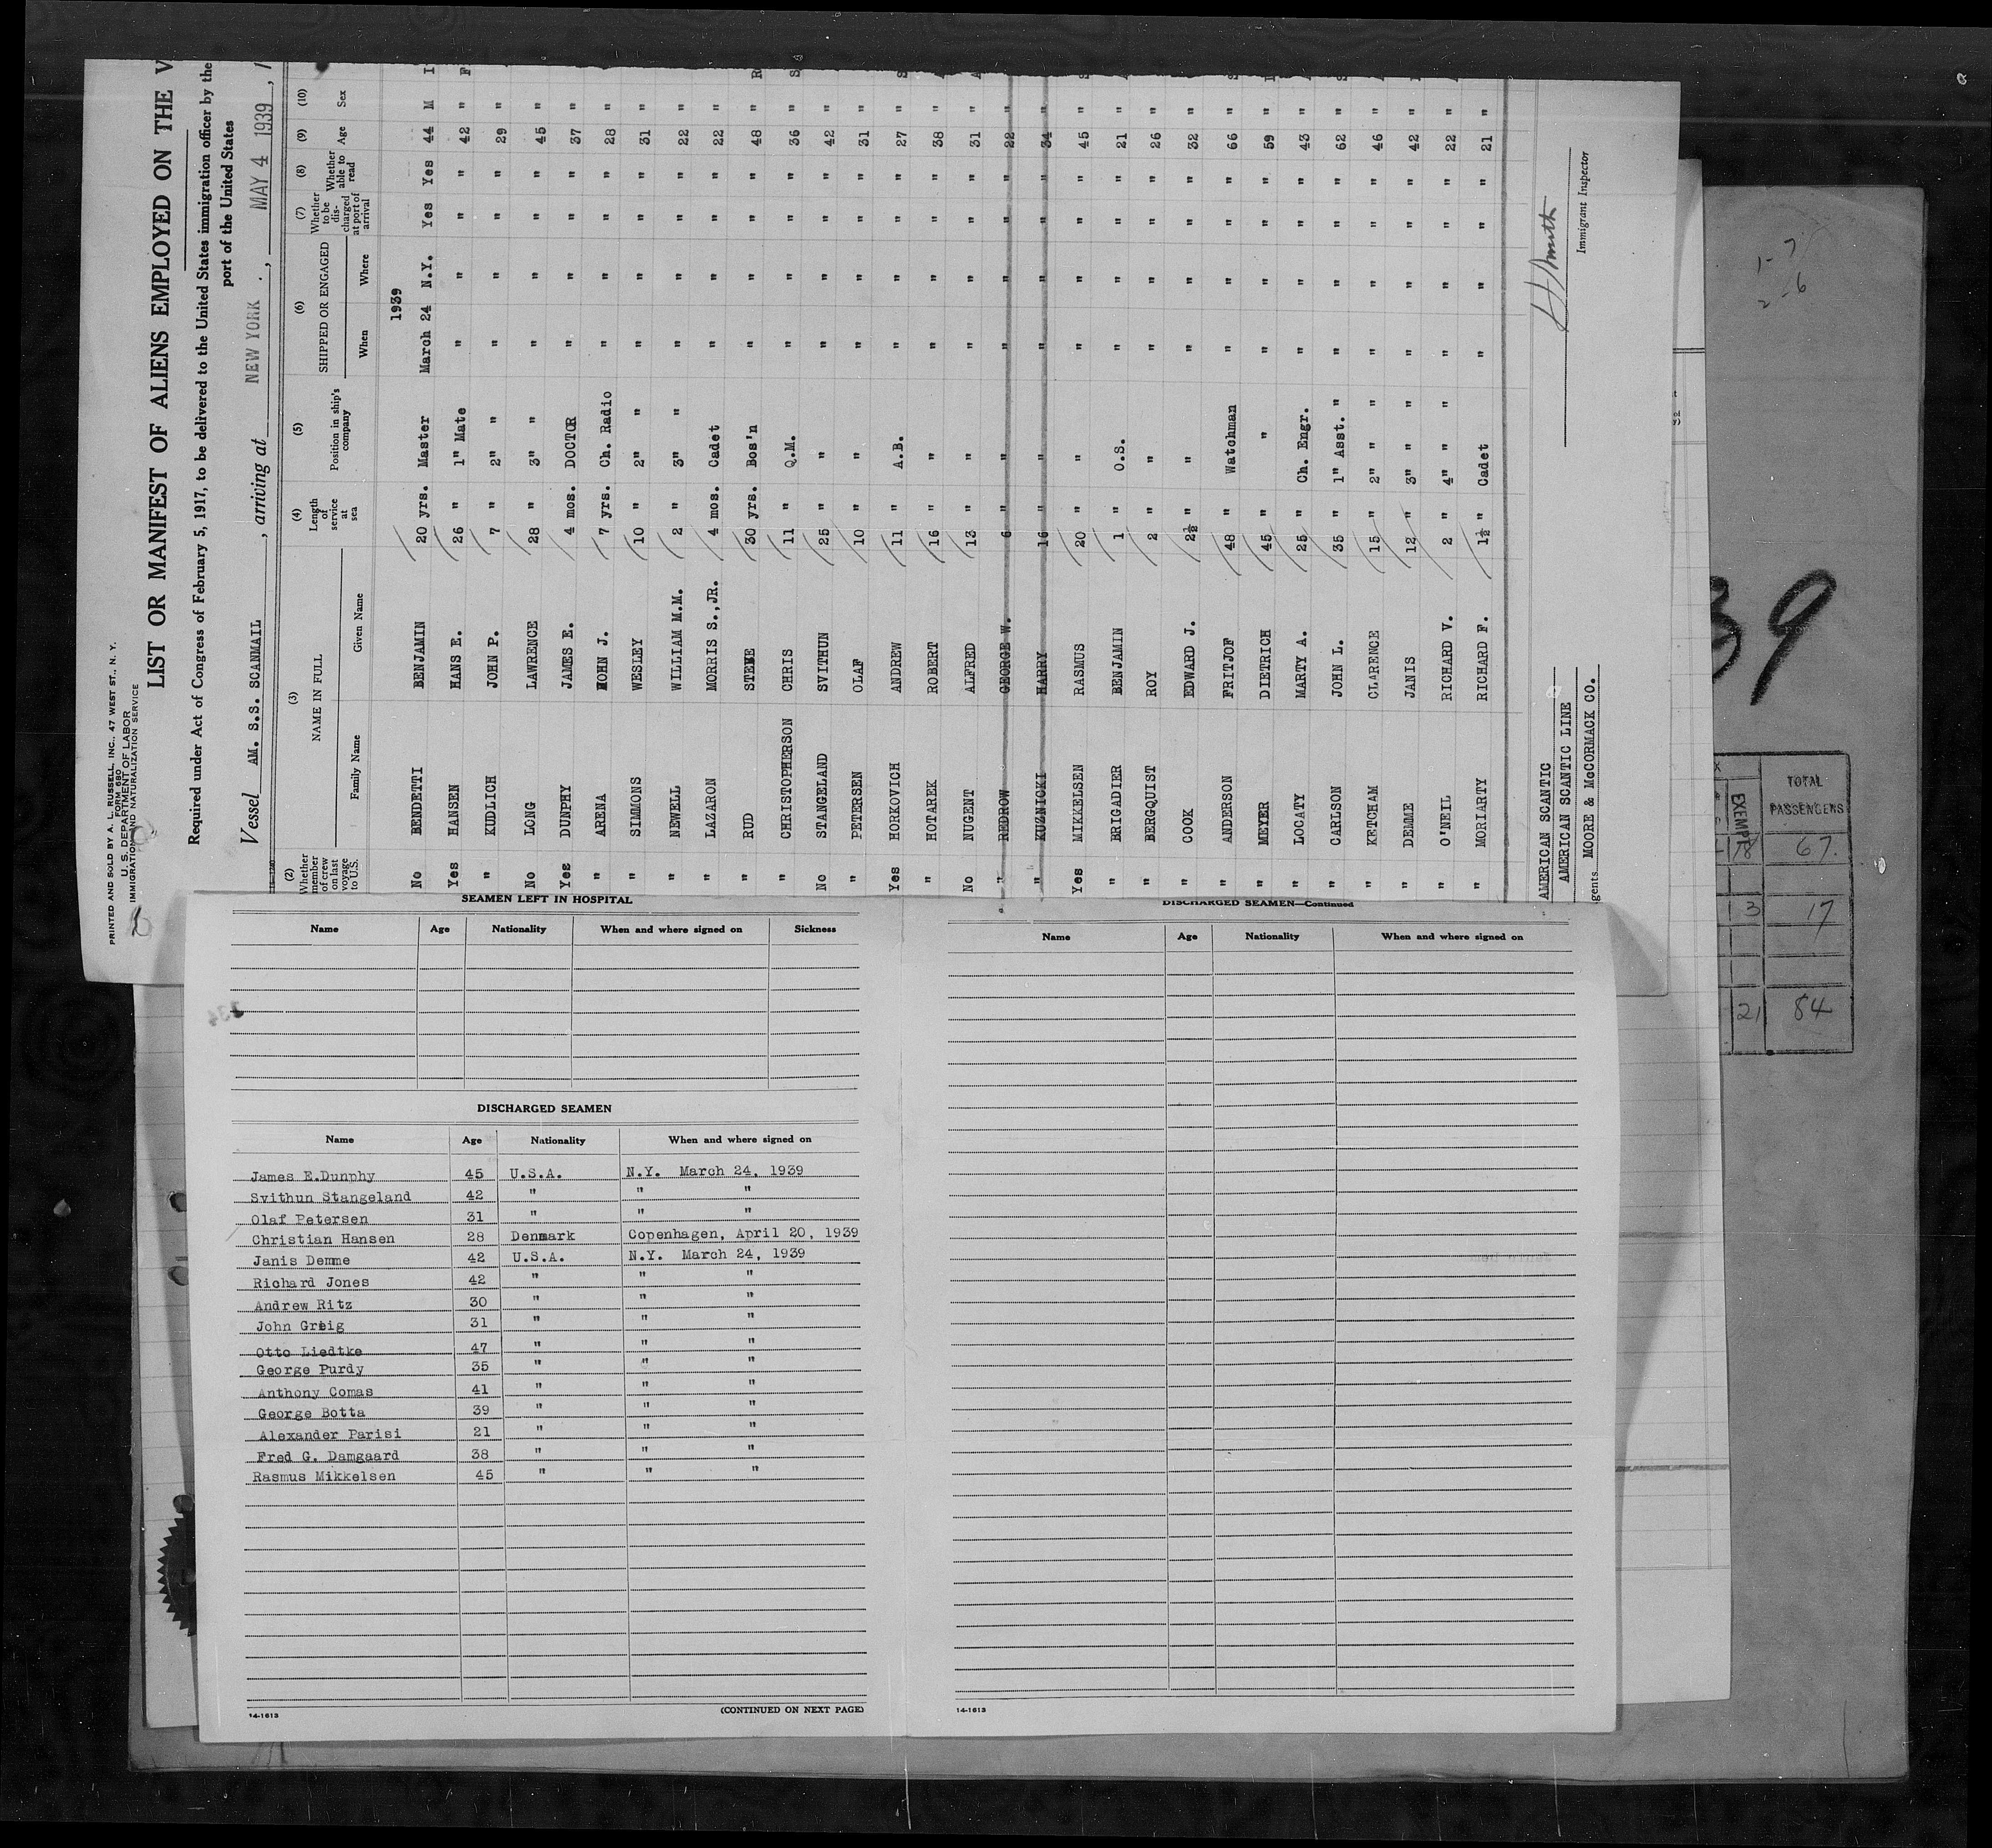 PRINTED AND SOLD BY A. L. RUSSELL, INC., 47 WEST ST., N. Y.
FORM 680
U. S. DEPARTMENT OF LABOR
IMMIGRATION AND NATURALIZATION SERVICE
LIST OR MANIFEST OF ALIENS EMPLOYED ON THE V
Required under Act of Congress of February 5, 1917, to be delivered to the United States immigration officer by the
port of the United States
Vessel AM. S.S. SCANMAIL, arriving at NEW YORK, MAY 4 1939
(2) Whether member of crew on last voyage to U.S. (3) NAME IN FULL Family Name Given Name (4) Length of service at sea (5) Position in ship's company (6) SHIPPED OR ENGAGED When Where (7) Whether to be discharged at port of arrival (8) Whether able to read (9) Age (10) Sex
1939
No BENDETTI BENJAMIN 20 yrs. Master March 24 N.Y. Yes Yes 44 M
Yes HANSEN HANS E. 26 " 1" Mate " " " " 42 "
" KUDLICH JOHN P. 7 " 2" " " " " " 29 "
No LONG LAWRENCE 28 " 3" " " " " " 45 "
Yes DUNPHY JAMES E. 4 mos. DOCTOR " " " " 37 "
" ARENA JOHN J. 7 yrs. Ch. Radio " " " " 28 "
" SIMMONS WESLEY 10 " 2" " " " " " 31 "
" NEWELL WILLIAM M.M. 2 " 3" " " " " " 22 "
" LAZARON MORRIS S.,JR. 4 mos. Cadet " " " " 22 "
" RUD STENE 30 yrs. Bos'n " " " " 48 "
" CHRISTOPHERSON CHRIS 11 " Q.M. " " " " 36 "
No STANGELAND SVITHUN 25 " " " " " " 42 "
" PETERSEN OLAF 10 " " " " " " 31 "
Yes HORKOVICH ANDREW 11 " A.B. " " " " 27 "
" HOTAREK ROBERT 16 " " " " " " 38 "
No NUGENT ALFRED 13 " " " " " " 31 "
" REDROW GEORGE W. 6 " " " " " " 22 "
" KUZNICKI HARRY 16 " " " " " " 34 "
Yes MIKKELSEN RASMUS 20 " " " " " " 45 "
" BRIGADIER BENJAMIN 1 " O.S. " " " " 21 "
" BERGQUIST ROY 2 " " " " " " 26 "
" COOK EDWARD J. 2½ " " " " " " 32 "
" ANDERSON FRITJOF 48 " Watchman " " " " 66 "
" MEYER DIETRICH 45 " " " " " " 59 "
" LOCATY MARTY A. 25 " Ch. Engr. " " " " 43 "
" CARLSON JOHN L. 35 " 1" Asst. " " " " " 62 "
" KETCHAM CLARENCE 15 " 2" " " " " " " 46 "
" DEMME JANIS 12 " 3" " " " " " " 42 "
" O'NEIL RICHARD V. 2 " 4" " " " " " " 22 "
" MORIARTY RICHARD F. 1½ " Cadet " " " " 21 "
AMERICAN SCANTIC
AMERICAN SCANTIC LINE
MOORE & McCORMACK CO.
gents.
Immigrant Inspector
1-7
2-6
39
EXEMPT TOTAL PASSENGERS
18 67.
13 17
21 84
SEAMEN LEFT IN HOSPITAL
Name Age Nationality When and where signed on Sickness
DISCHARGED SEAMEN
Name Age Nationality When and where signed on
James E.Dunphy 45 U.S.A. N.Y. March 24, 1939
Svithun Stangeland 42 " " "
Olaf Petersen 31 " " "
Christian Hansen 28 Denmark Copenhagen, April 20, 1939
Janis Demme 42 U.S.A. N.Y. March 24, 1939
Richard Jones 42 " " "
Andrew Ritz 30 " " "
John Greig 31 " " "
Otto Liedtke 47 " " "
George Purdy 35 " " "
Anthony Comas 41 " " "
George Botta 39 " " "
Alexander Parisi 21 " " "
Fred G. Damgaard 38 " " "
Rasmus Mikkelsen 45 " " "
14-1613
(CONTINUED ON NEXT PAGE)
DISCHARGED SEAMEN—Continued
Name Age Nationality When and where signed on
14-1613